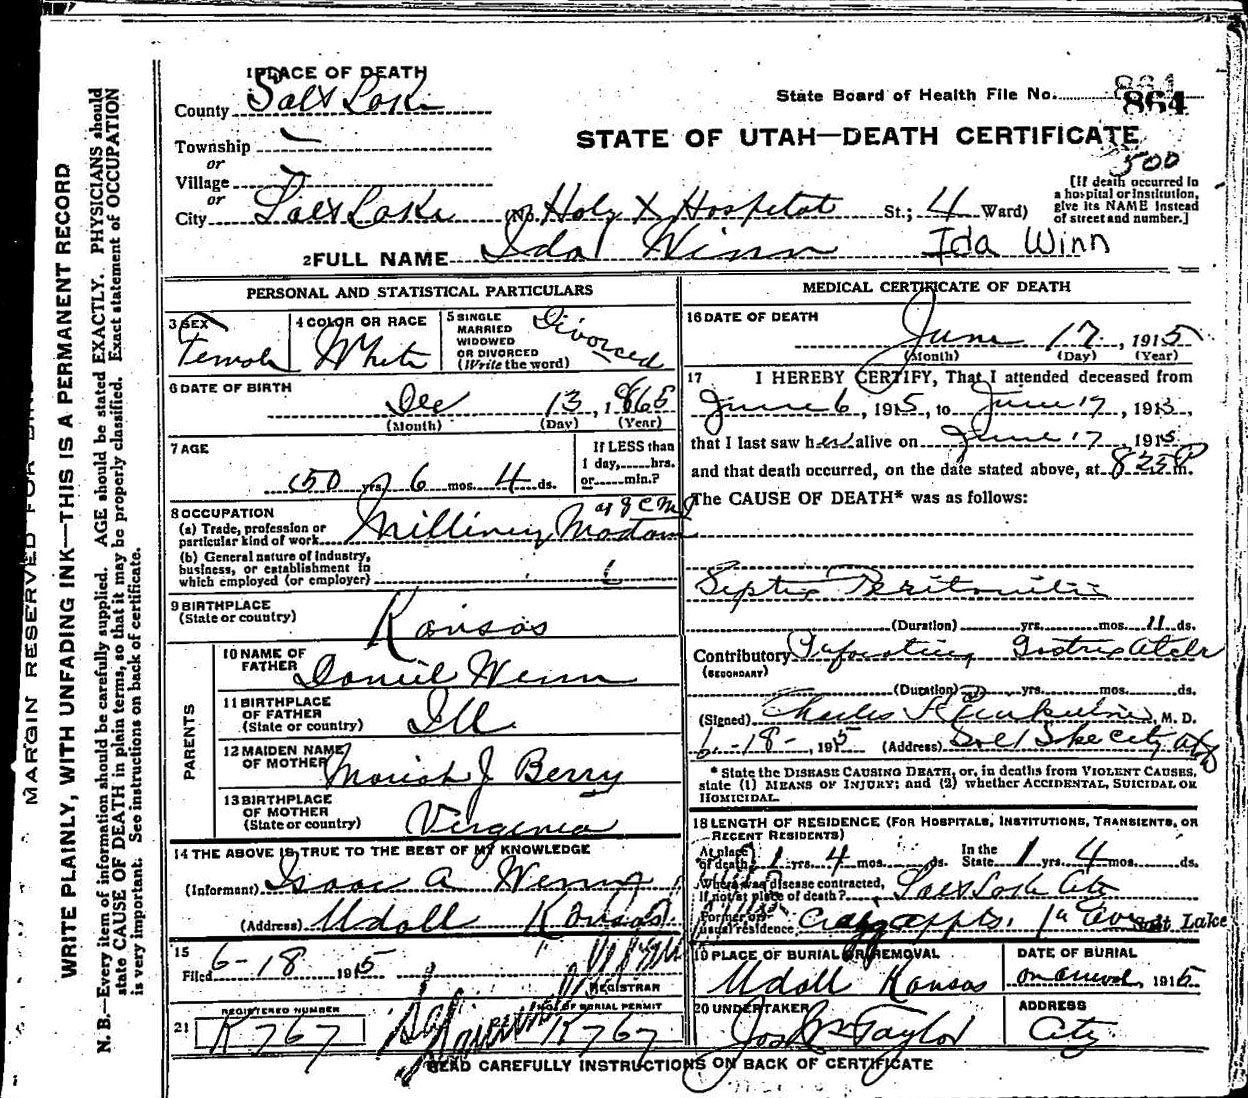 1 PLACE OF DEATH
County Salt Lake
State Board of Health File No. 864
864
Township
or
Village
or
City Salt Lake (No. Holy X Hospital St.; 4 Ward)
STATE OF UTAH—DEATH CERTIFICATE
500
[If death occurred in
a hospital or institution,
give its NAME instead
of street and number.]
2 FULL NAME Ida Winn Ida Winn
PERSONAL AND STATISTICAL PARTICULARS
3 SEX
Female
4 COLOR OR RACE
White
5 SINGLE
MARRIED
WIDOWED
OR DIVORCED
(Write the word)
Divorced
6 DATE OF BIRTH
Dec 13, 1865
(Month) (Day) (Year)
7 AGE
50 yrs. 6 mos. 4 ds.
If LESS than
1 day,......hrs.
or......min.?
8 OCCUPATION
(a) Trade, profession or
particular kind of work Millinery
(b) General nature of industry,
business, or establishment in
which employed (or employer)
9 BIRTHPLACE
(State or country)
Kansas
PARENTS
10 NAME OF
FATHER
Daniel Winn
11 BIRTHPLACE
OF FATHER
(State or country)
Ill
12 MAIDEN NAME
OF MOTHER
J Berry
13 BIRTHPLACE
OF MOTHER
(State or country)
Virginia
14 THE ABOVE IS TRUE TO THE BEST OF MY KNOWLEDGE
(Informant) Isaac A Wenny
(Address) Udall Kansas
15
Filed 6-18 1915
REGISTRAR
21
REGISTERED NUMBER
K767
NO. OF BURIAL PERMIT
K767
MEDICAL CERTIFICATE OF DEATH
16 DATE OF DEATH
June 17, 1915
(Month) (Day) (Year)
17 I HEREBY CERTIFY, That I attended deceased from
June 6, 1915, to June 17, 1915,
that I last saw her alive on June 17, 1915
and that death occurred, on the date stated above, at 825 P m.
The CAUSE OF DEATH* was as follows:
Septic Peritonitis
(Duration) yrs. mos. 11 ds.
Contributory
(SECONDARY)
(Duration) yrs. mos. ds.
(Signed) Charles M. D.
6-18-, 1915 (Address) Salt Lake City Utah
* State the DISEASE CAUSING DEATH, or, in deaths from VIOLENT CAUSES,
state (1) MEANS OF INJURY; and (2) whether ACCIDENTAL, SUICIDAL OR
HOMICIDAL.
18 LENGTH OF RESIDENCE (FOR HOSPITALS, INSTITUTIONS, TRANSIENTS, OR
RECENT RESIDENTS)
At place
of death 1 yrs. 4 mos. ds. In the
State 1 yrs. 4 mos. ds.
Where was disease contracted,
If not at place of death? Salt Lake City
Former or
usual residence Craig appts. 1st Ave Salt Lake
19 PLACE OF BURIAL OR REMOVAL
Udall Kansas
DATE OF BURIAL
on arrival, 1915
20 UNDERTAKER
Jos Wm Taylor
ADDRESS
City
READ CAREFULLY INSTRUCTIONS ON BACK OF CERTIFICATE
MARGIN RESERVED FOR
WRITE PLAINLY, WITH UNFADING INK—THIS IS A PERMANENT RECORD
N. B.—Every item of information should be carefully supplied. AGE should be stated EXACTLY. PHYSICIANS should
state CAUSE OF DEATH in plain terms, so that it may be properly classified. Exact statement of OCCUPATION
is very important. See instructions on back of certificate.